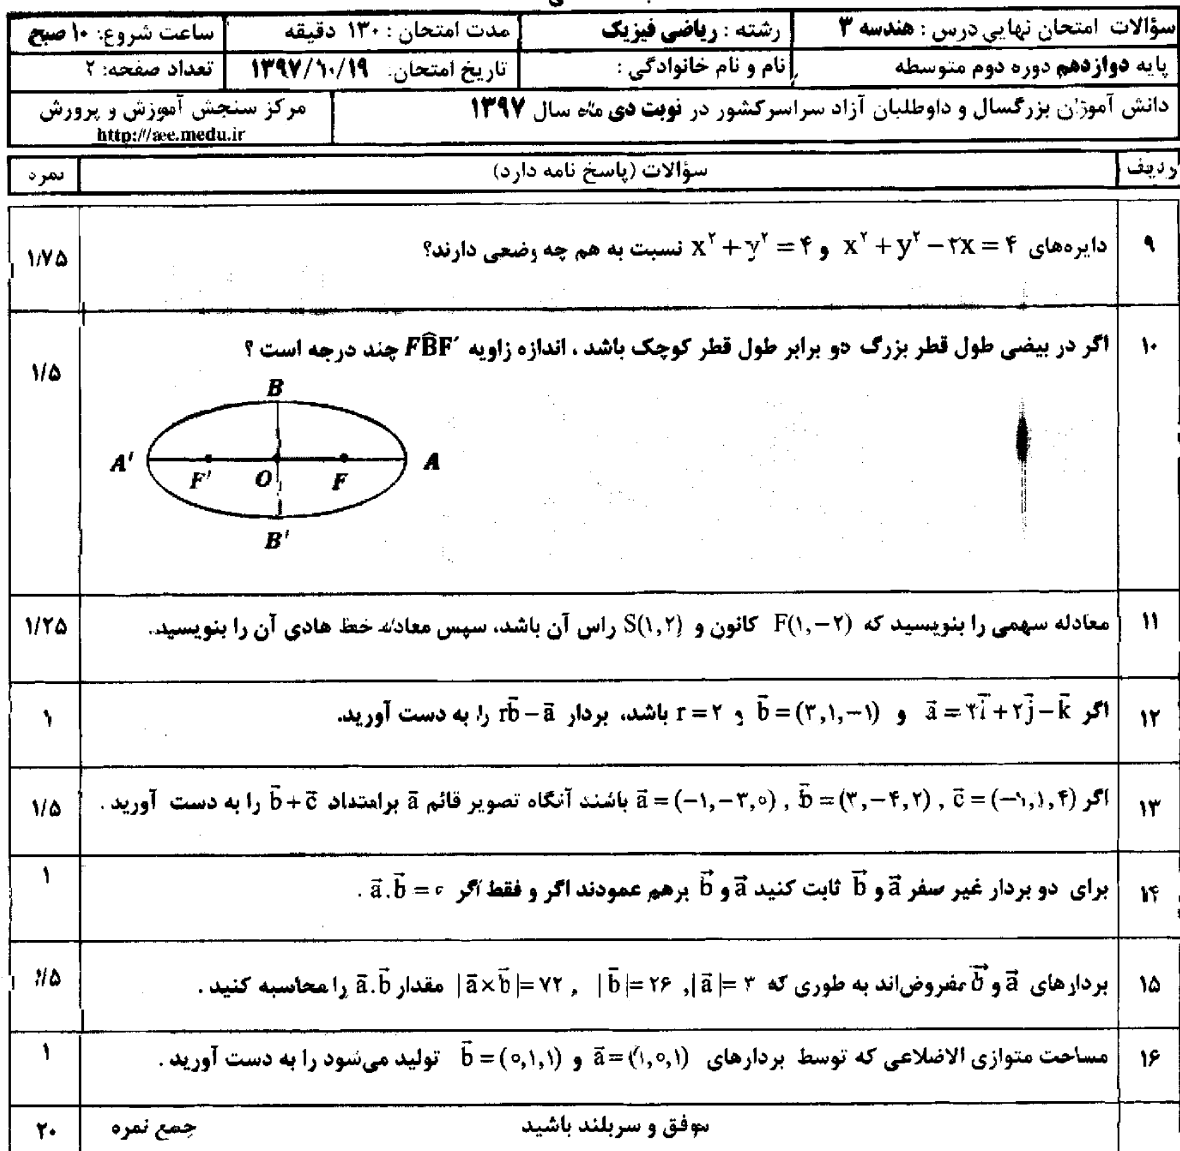 سؤالات امتحان نهایی درس : هندسه ۳ رشته : ریاضی فیزیک مدت امتحان : ۱۳۰ دقیقه ساعت شروع: ۱۰ صبح
پایه دوازدهم دوره دوم متوسطه نام و نام خانوادگی : تاریخ امتحان: ۱۳۹۷/۱۰/۱۹ تعداد صفحه: ۲
دانش آموزان بزرگسال و داوطلبان آزاد سراسر کشور در نوبت دی ماه سال ۱۳۹۷ مرکز سنجش آموزش و پرورش
http://aee.medu.ir
ردیف سؤالات (پاسخ نامه دارد) نمره
۹ دایره‌های x²+y²-۲x=۴ و x²+y²=۴ نسبت به هم چه وضعی دارند؟ ۱/۷۵
۱۰ اگر در بیضی طول قطر بزرگ دو برابر طول قطر کوچک باشد ، اندازه زاویه FB̂F′ چند درجه است ؟ ۱/۵
B
A′ F′ O F A
B′
۱۱ معادله سهمی را بنویسید که F(۱,-۲) کانون و S(۱,۲) راس آن باشد، سپس معادله خط هادی آن را بنویسید. ۱/۲۵
۱۲ اگر a⃗ = ۴i⃗+۲j⃗-k⃗ و b⃗=(۳,۱,-۱) و r=۲ باشد، بردار rb⃗-a⃗ را به دست آورید. ۱
۱۳ اگر a⃗=(-۱,-۳,۰) , b⃗=(۳,-۴,۲) , c⃗=(-۱,۱,۴) باشند آنگاه تصویر قائم a⃗ برامتداد b⃗+c⃗ را به دست آورید . ۱/۵
۱۴ برای دو بردار غیر صفر a⃗ و b⃗ ثابت کنید a⃗ و b⃗ برهم عمودند اگر و فقط اگر a⃗.b⃗=۰ . ۱
۱۵ بردارهای a⃗ و b⃗ مفروض‌اند به طوری که |a⃗|=۳ , |b⃗|=۲۶ , |a⃗×b⃗|=۷۲ مقدار a⃗.b⃗ را محاسبه کنید . ۱/۵
۱۶ مساحت متوازی الاضلاعی که توسط بردارهای a⃗=(۱,۰,۱) و b⃗=(۰,۱,۱) تولید می‌شود را به دست آورید . ۱
موفق و سربلند باشید جمع نمره ۲۰